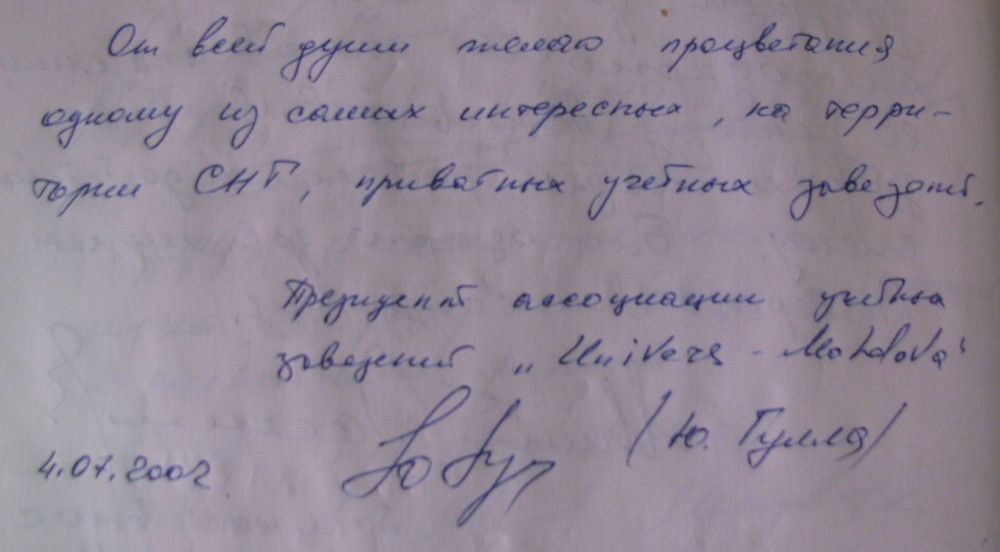 От всей души желаю процветания
одному из самых интересных, на терри-
тории СНГ, приватных учебных заведений.
Президент ассоциации учебных
заведений „Univers - Moldova"
(Ю. Гулла)
4.07.2002